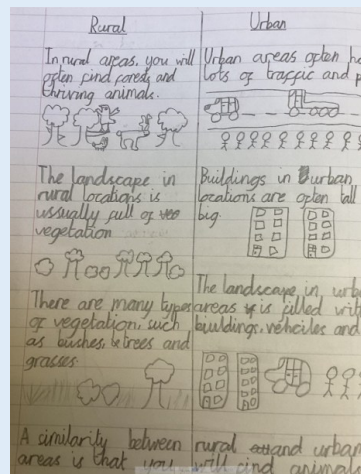 Rural
In rural areas, you will
often find forests and
thriving animals.
The landscape in
rural locations is
ususally full of
vegetation
There are many types
of vegetation, such
as bushes, trees and
grasses
Urban
Urban areas often
lots of traffic and
Buildings in urban
locations are often tall
big.
The landscape in
areas is filled
buildings, vehicles and
A similarity between rural and urban
areas is that you will find